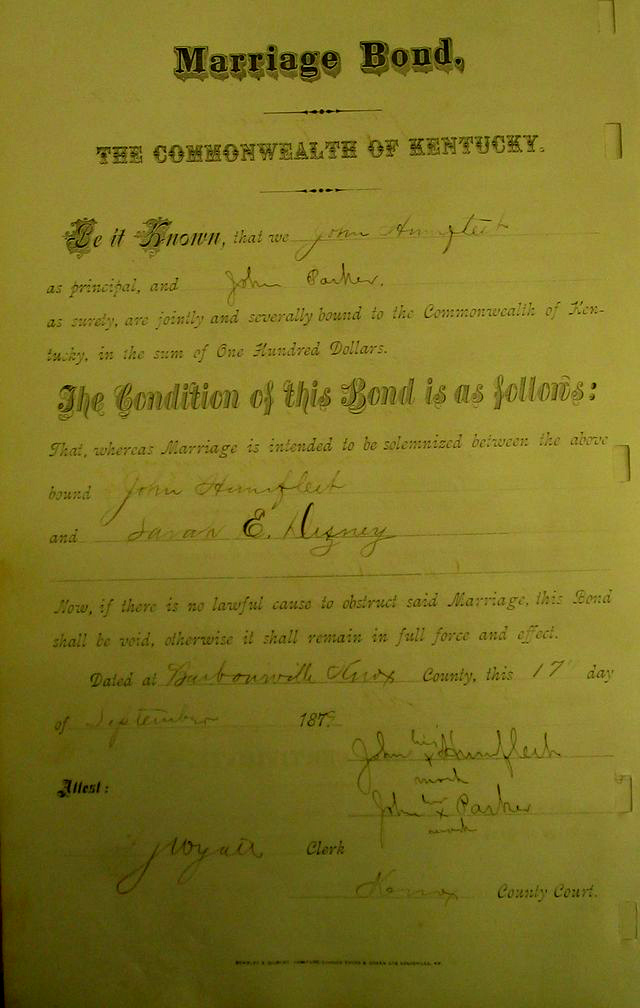 Marriage Bond.
THE COMMONWEALTH OF KENTUCKY.
Be it Known, that we John Humfleet
as principal, and John Parker.
as surety, are jointly and severally bound to the Commonwealth of Ken-
tucky, in the sum of One Hundred Dollars.
The Condition of this Bond is as follows:
That, whereas Marriage is intended to be solemnized between the above
bound John Humfleet
and Sarah E. Dizney
Now, if there is no lawful cause to obstruct said Marriage, this Bond
shall be void, otherwise it shall remain in full force and effect.
Dated at Barbourville Knox County, this 17 day
of September 1879
John his x Humfleet
mark
Attest:
John his x Parker
mark
J Wyatt Clerk
Knox County Court.